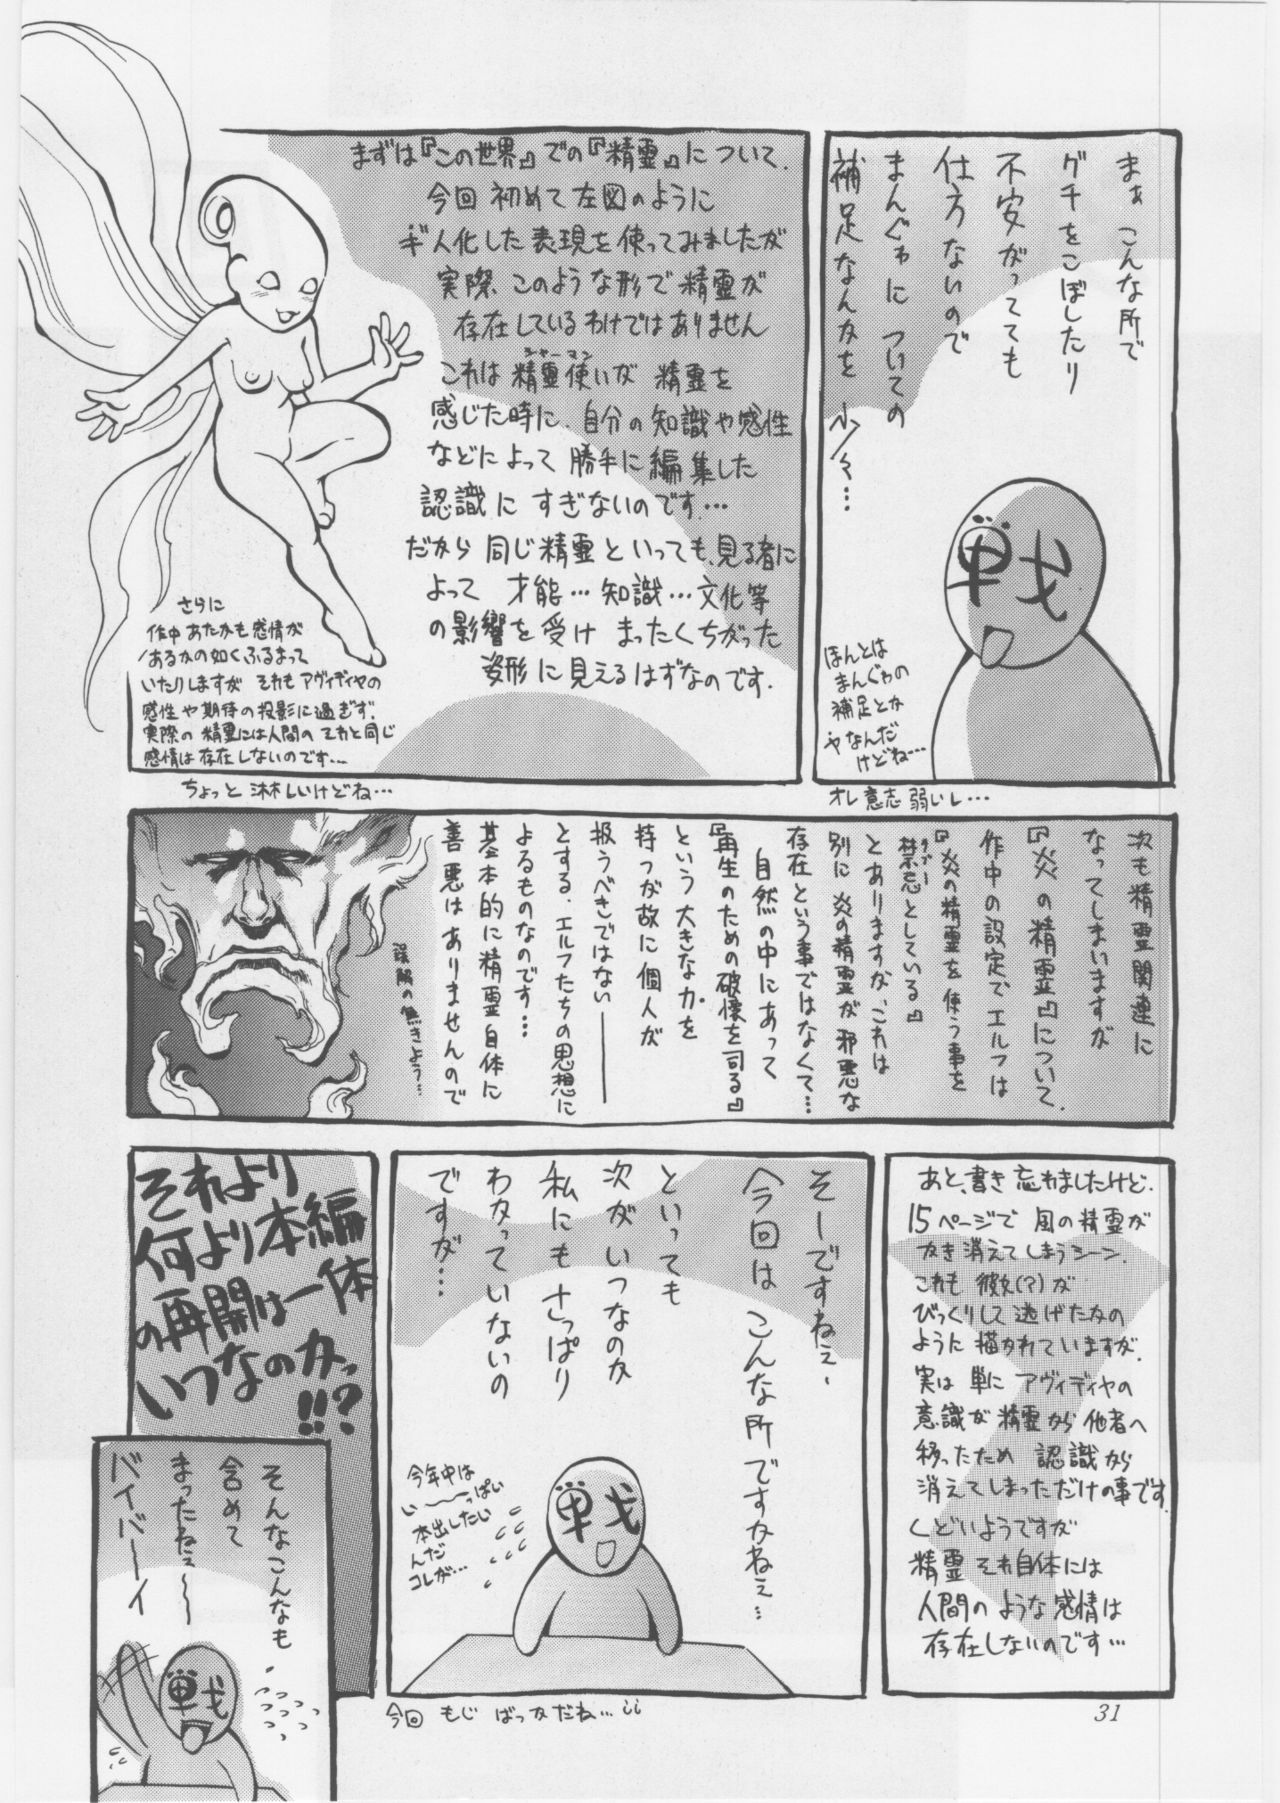 まぁ こんな所で
グチをこぼしたり
不安がってても
仕方ないので
まんぐゎに ついての
補足なんかを 少々…
戦
ほんとは
まんぐゎの
補足とか
ヤなんだ
けどね…
オレ意志弱いし…
まずは『この世界』での『精霊』について.
今回 初めて左図のように
ギ人化した表現を使ってみましたが
実際 このような形で精霊が
存在しているわけではありません
シャーマン
これは 精霊使いが 精霊を
感じた時に、自分の知識や感性
などによって 勝手に編集した
認識に すぎないのです…
だから 同じ精霊といっても、見る者に
よって 才能…知識…文化等
の影響を受け まったくちがった
姿形に見えるはずなのです.
さらに
作中あたかも感情が
あるかの如くふるまって
いたりしますが それもアヴィディヤの
感性や期待の投影に過ぎず.
実際の精霊には人間のそれと同じ
感情は存在しないのです…
ちょっと淋しいけどね…
次も精霊関連に
なってしまいますが
『炎の精霊』について.
作中の設定でエルフは
『炎の精霊を使う事を
禁忌としている』
とありますが、これは
別に炎の精霊が邪悪な
存在という事ではなくて…
自然の中にあって
『再生のための破壊を司る』
という大きな力を
持つが故に個人が
扱うべきではない――
とする、エルフたちの思想に
よるものなのです…
基本的に精霊自体に
善悪はありませんので
誤解の無きよう…
あと、書き忘れましたけど.
15ページで 風の精霊が
かき消えてしまうシーン.
これも 彼女(?)が
びっくりして逃げたかの
ように描かれていますが.
実は 単に アヴィディヤの
意識が精霊から他者へ
移ったため 認識から
消えてしまっただけの事です.
くどいようですが
精霊それ自体には
人間のような感情は
存在しないのです…
そーですねぇ、
今回はこんな所ですかねぇ…
といっても
次がいつなのか
私にもさっぱり
わかっていないの
ですが…
今年中は
い――っぱい
本出したい
んだ
コレが…
戦
今回 もじ ばっかだね…
それより
何より本編
の再開は一体
いつなのかっ
!!?
そんなこんなも
含めて
まったねぇ〜〜
バイバーイ
戦
31